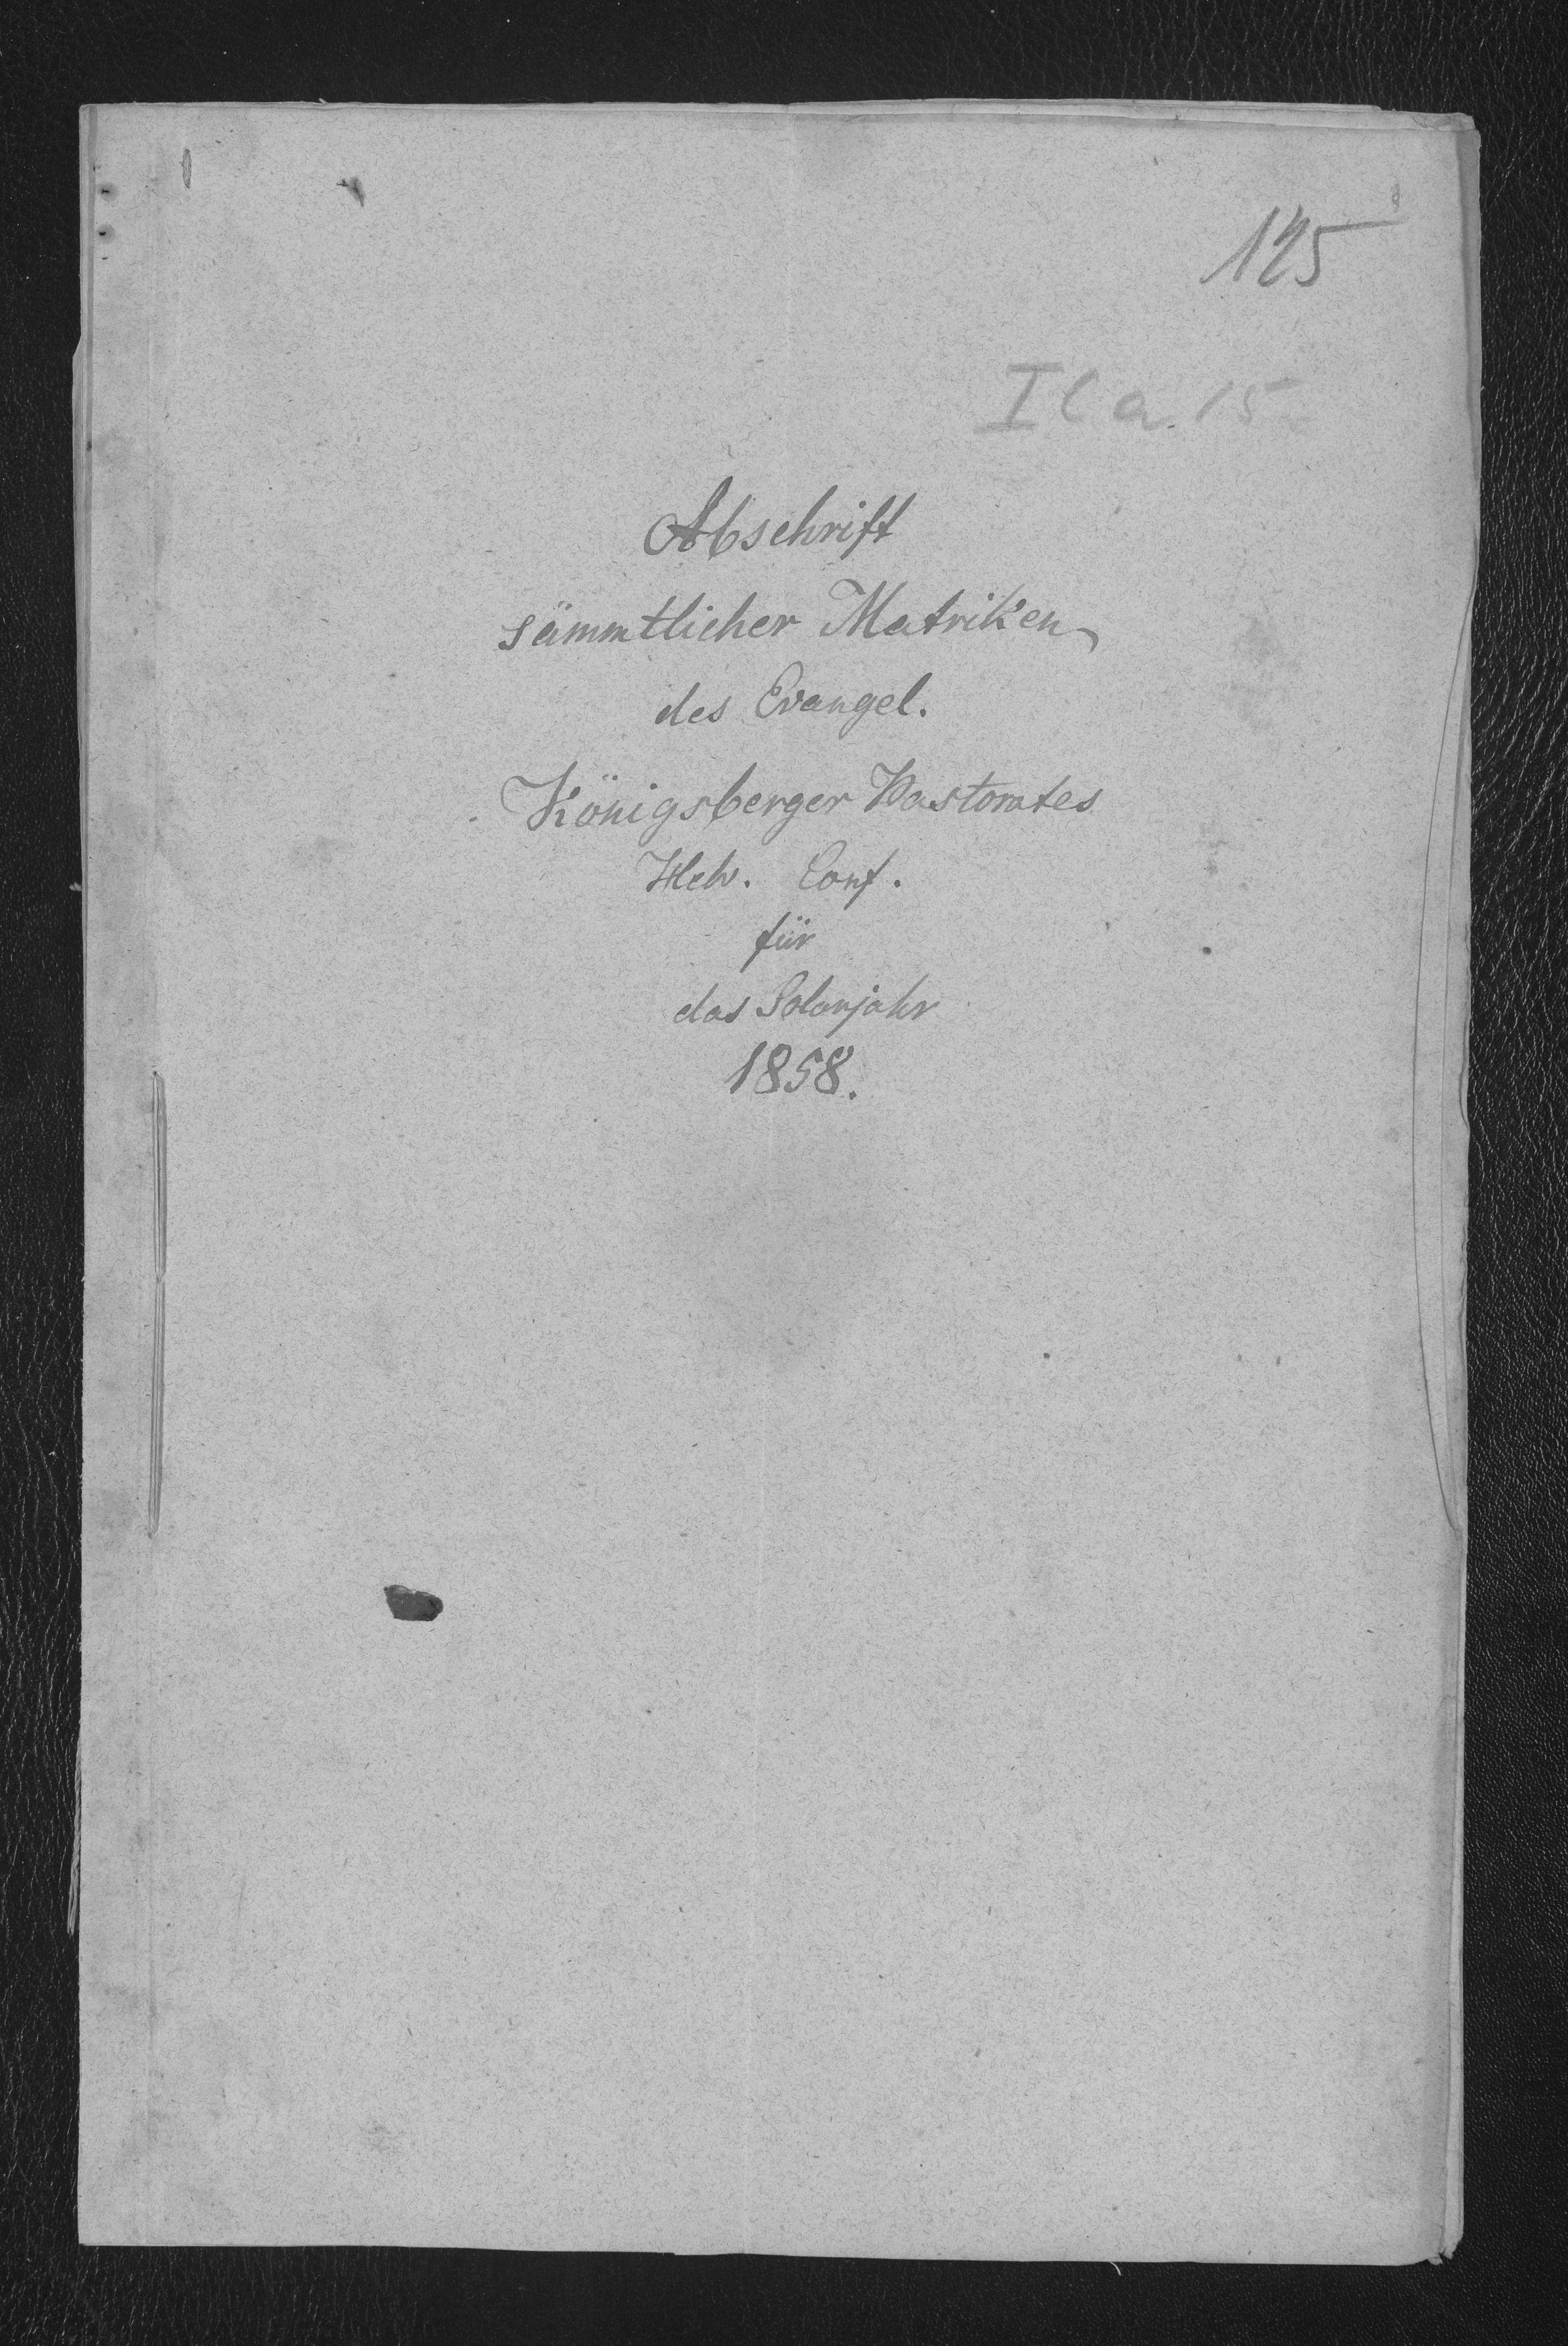 125
I C a. 15
Abschrift
sämmtlicher Matriken
des Evangel.
Königsberger Pastorates
Helv. Conf.
für
das Solarjahr
1858.